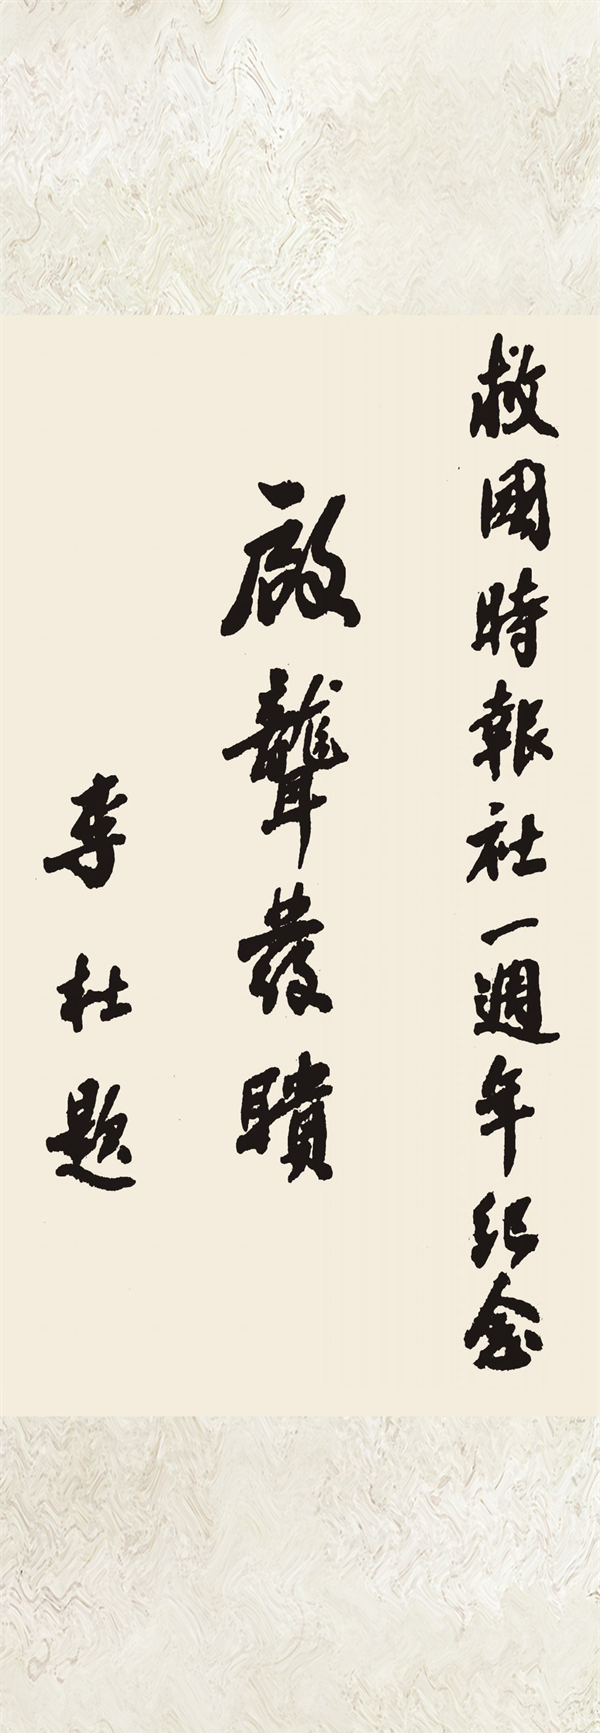 救國時報社一週年紀念
啟聾發聵
李杜題